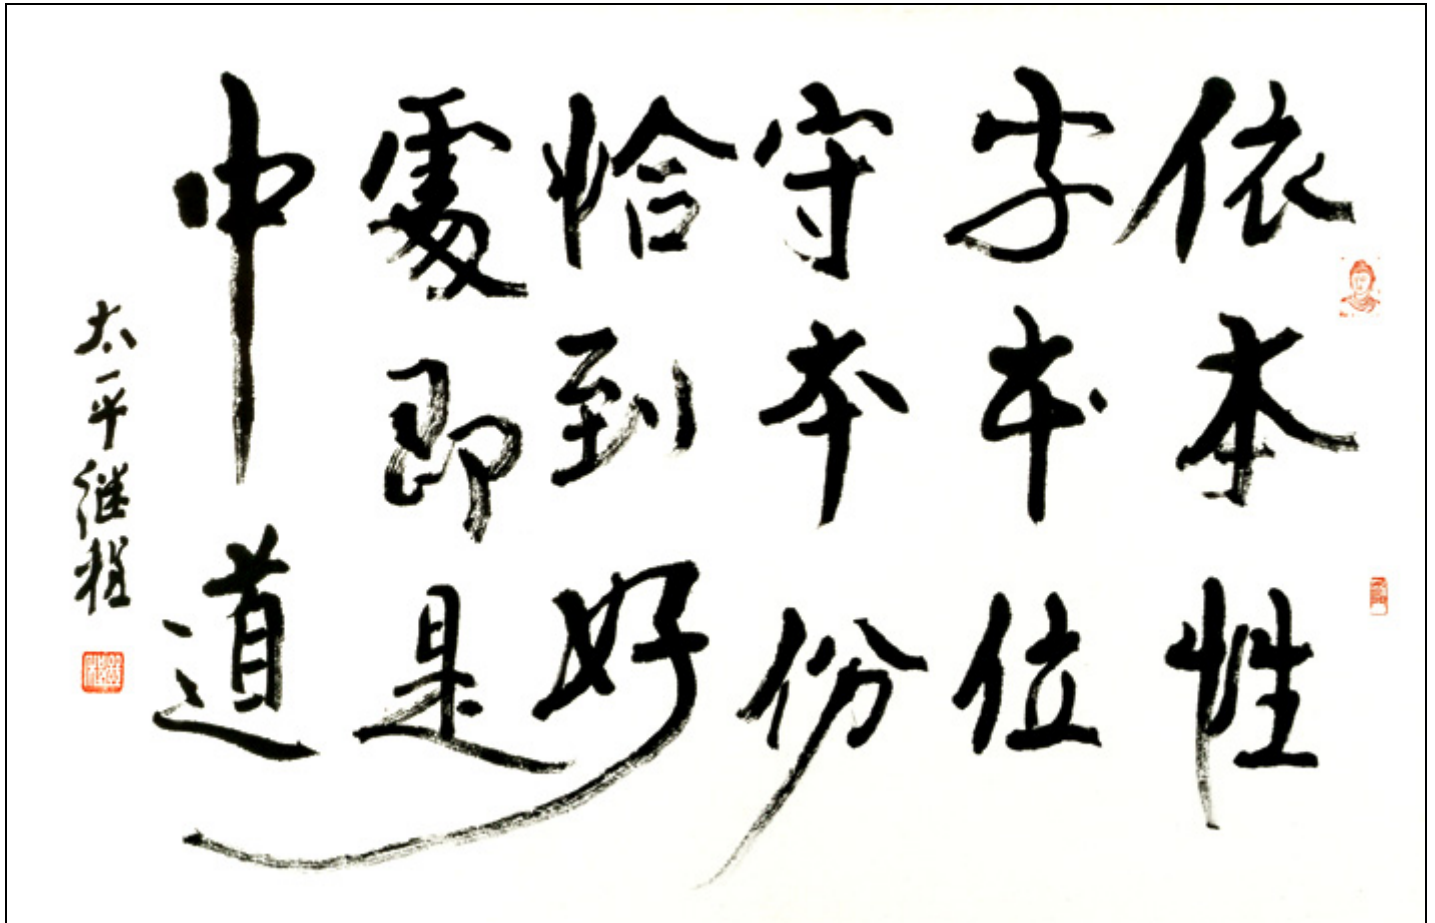 依本性
安本位
守本份
恰到好
處即是
中道
太平继程